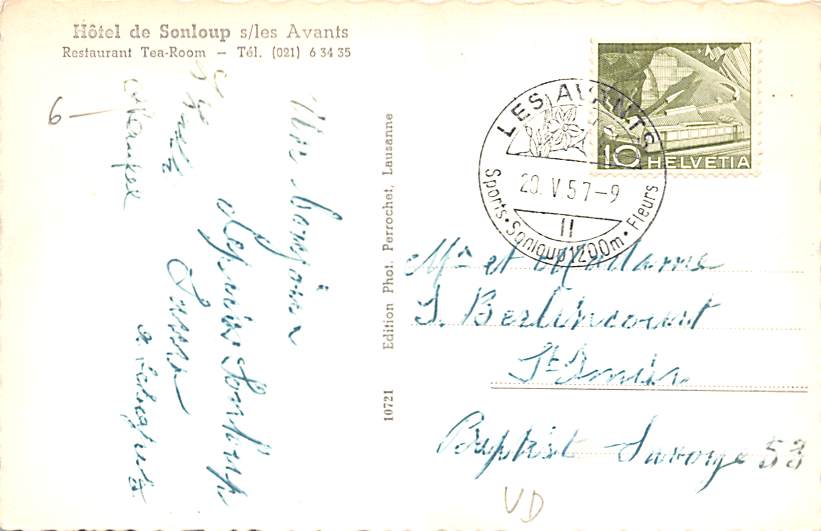 Hôtel de Sonloup s/les Avants
Restaurant Tea-Room – Tél. (021) 6 34 35
6 —
Un bonjour
depuis Sonloup
10721 Edition Phot. Perrochet, Lausanne
LES AVANTS
20. V. 57-9
II
Sports • Sonloup 1200m • Fleurs
10 HELVETIA
Mr et Madame
J. Berlincourt
St-Imier
Baptist Savoye 53
VD